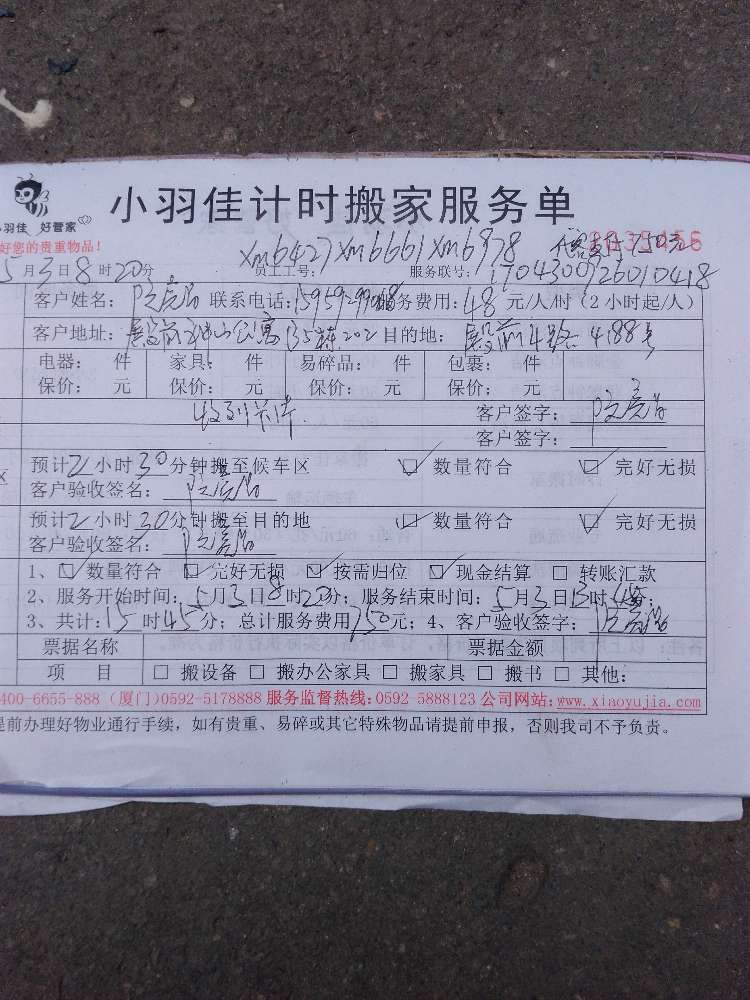 小羽佳计时搬家服务单
羽佳 好管家
好您的贵重物品!
xm6427 xm6661 xm6978
5月3日8时20分 员工工号: 服务联号: 1704300926010418
客户姓名: 联系电话: 服务费用:48元/人/时(2小时起/人)
客户地址: 目的地: 殿前4路488号
电器: 件 家具: 件 易碎品: 件 包裹: 件
保价: 元 保价: 元 保价: 元 保价: 元
客户签字:
客户签字:
预计2小时30分钟搬至候车区 数量符合 完好无损
客户验收签名:
预计2小时30分钟搬至目的地 数量符合 完好无损
客户验收签名:
1、数量符合 完好无损 按需归位 现金结算 转账汇款
2、服务开始时间:5月3日8时20分;服务结束时间:5月3日13时
3、共计:15时45分;总计服务费用750元;4、客户验收签字:
票据名称 票据金额
项 目 搬设备 搬办公家具 搬家具 搬书 其他:
400-6655-888 (厦门)0592-5178888 服务监督热线:0592 5888123 公司网站:www.xiaoyujia.com
提前办理好物业通行手续,如有贵重、易碎或其它特殊物品请提前申报,否则我司不予负责。